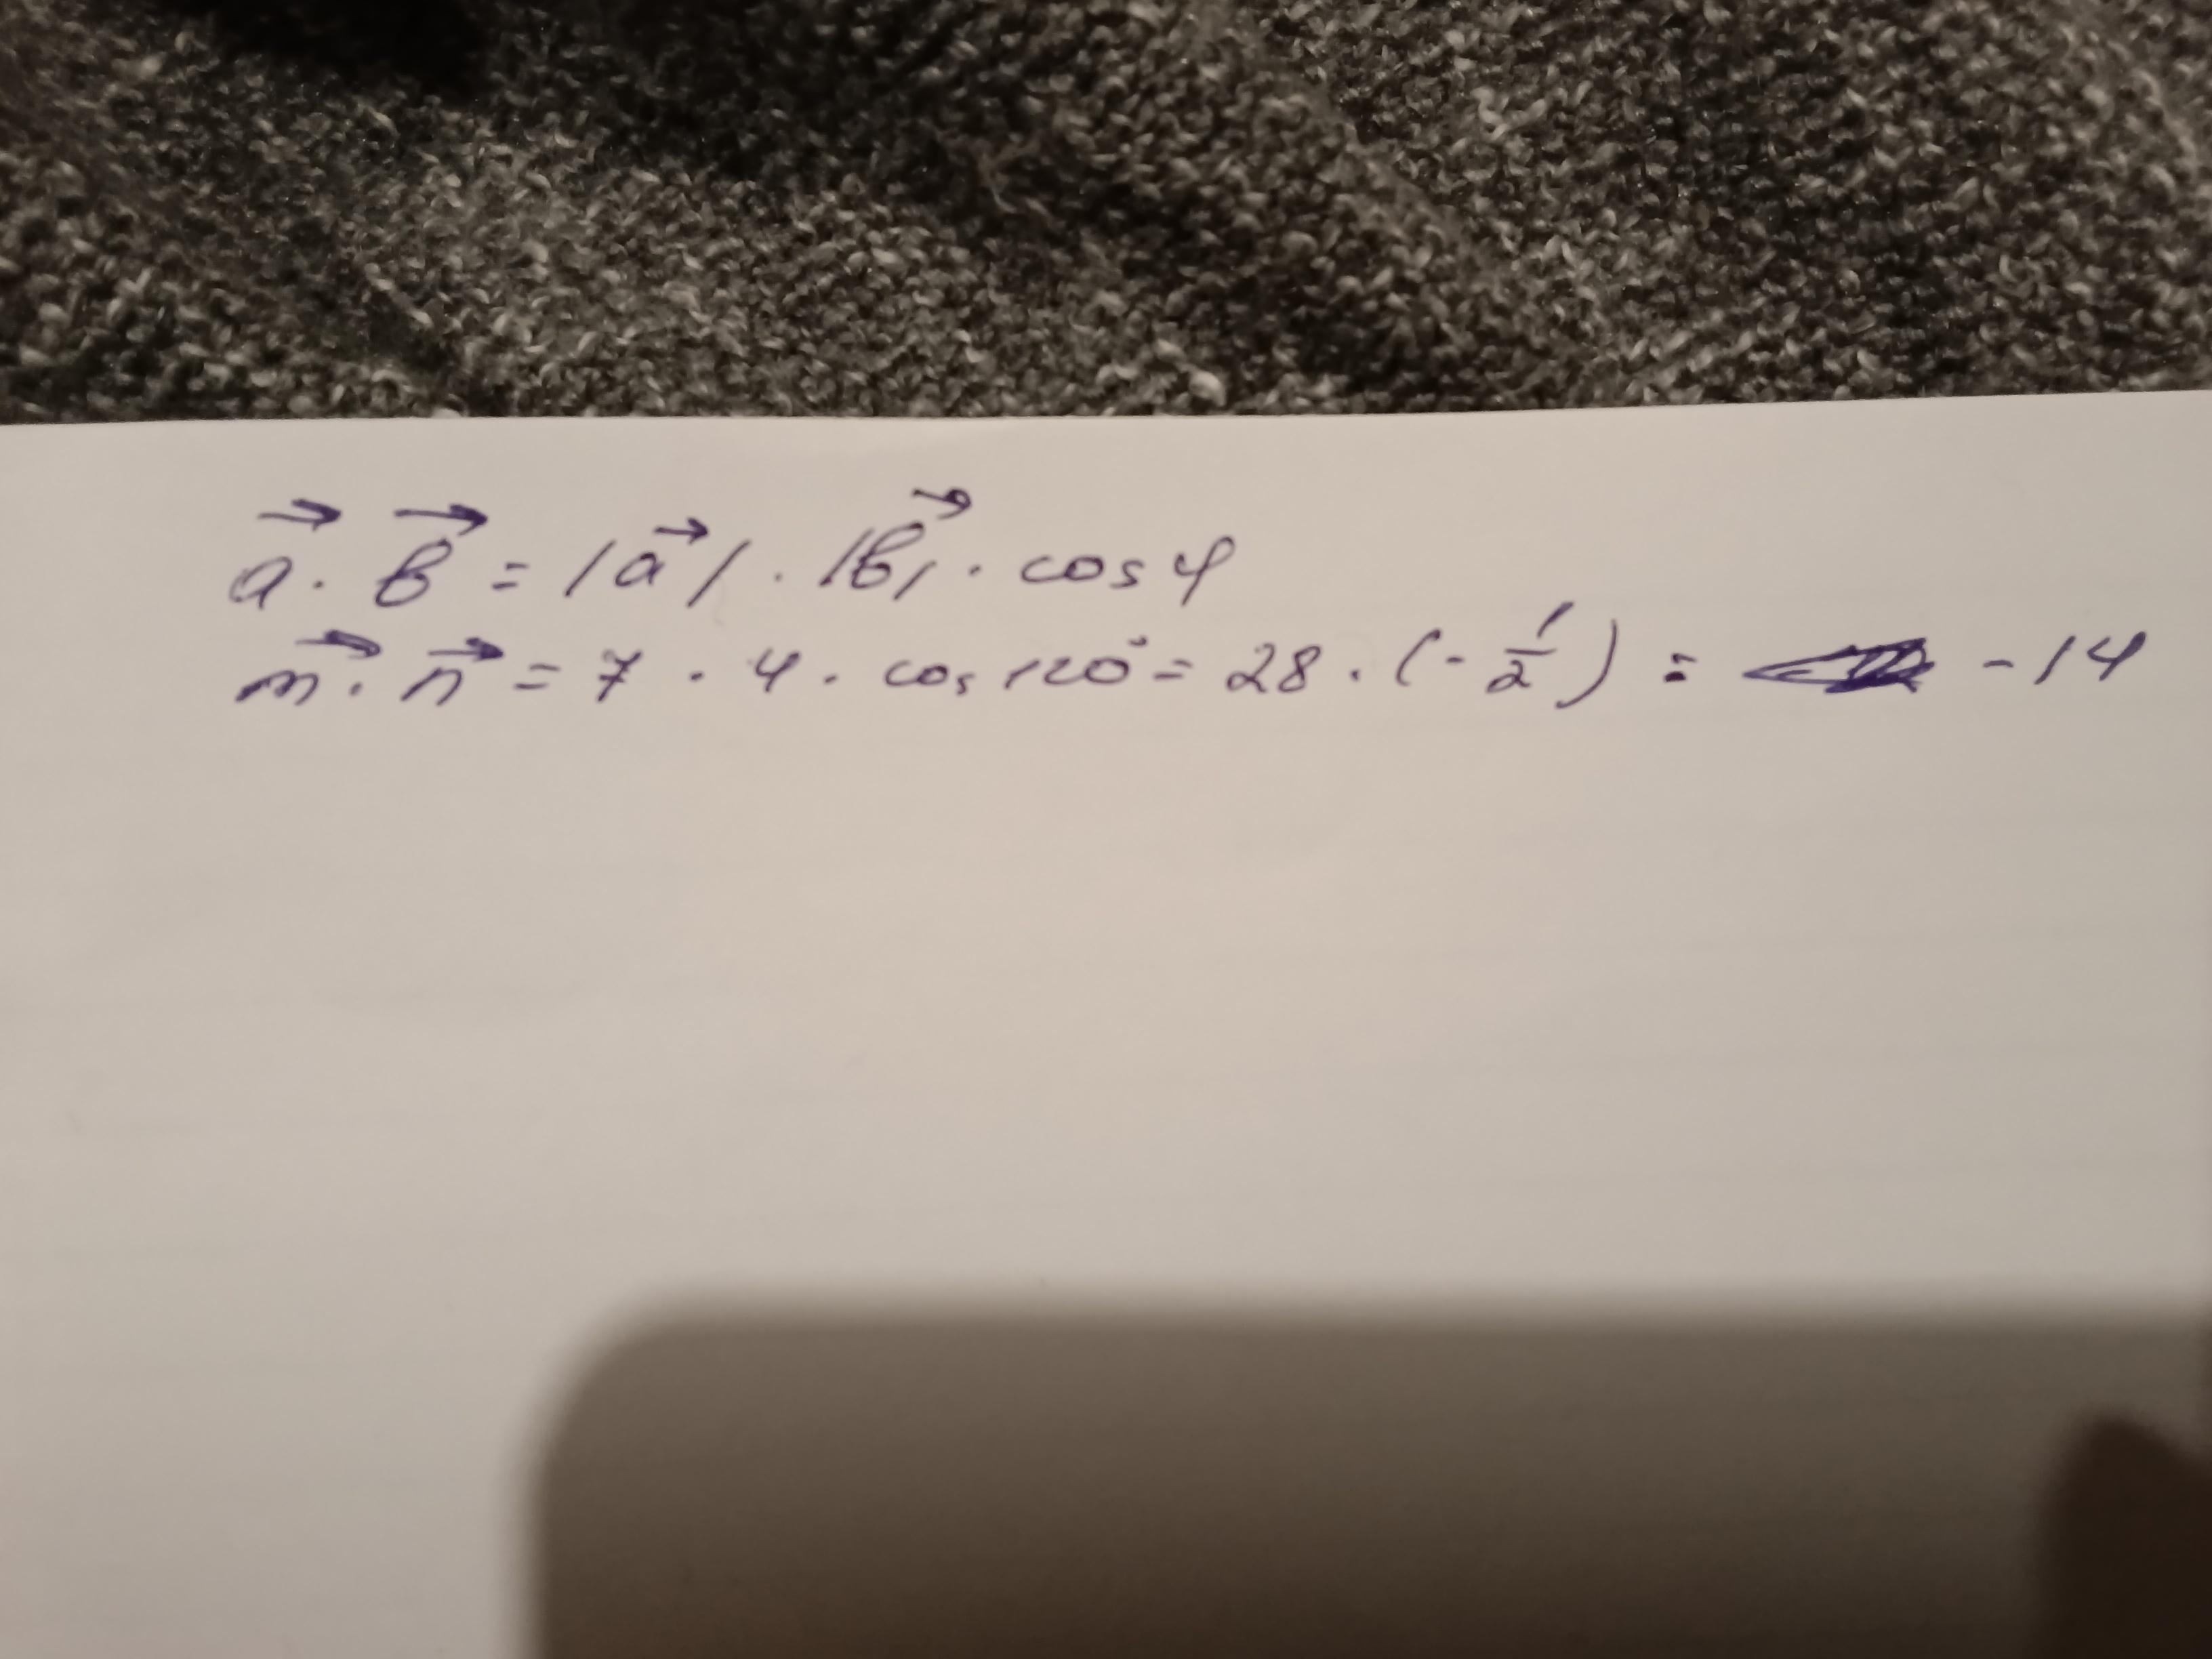 a⃗ · b⃗ = |a⃗| · |b⃗| · cos φ
m⃗ · n⃗ = 7 · 4 · cos 120° = 28 · (- 1/2) = - 14